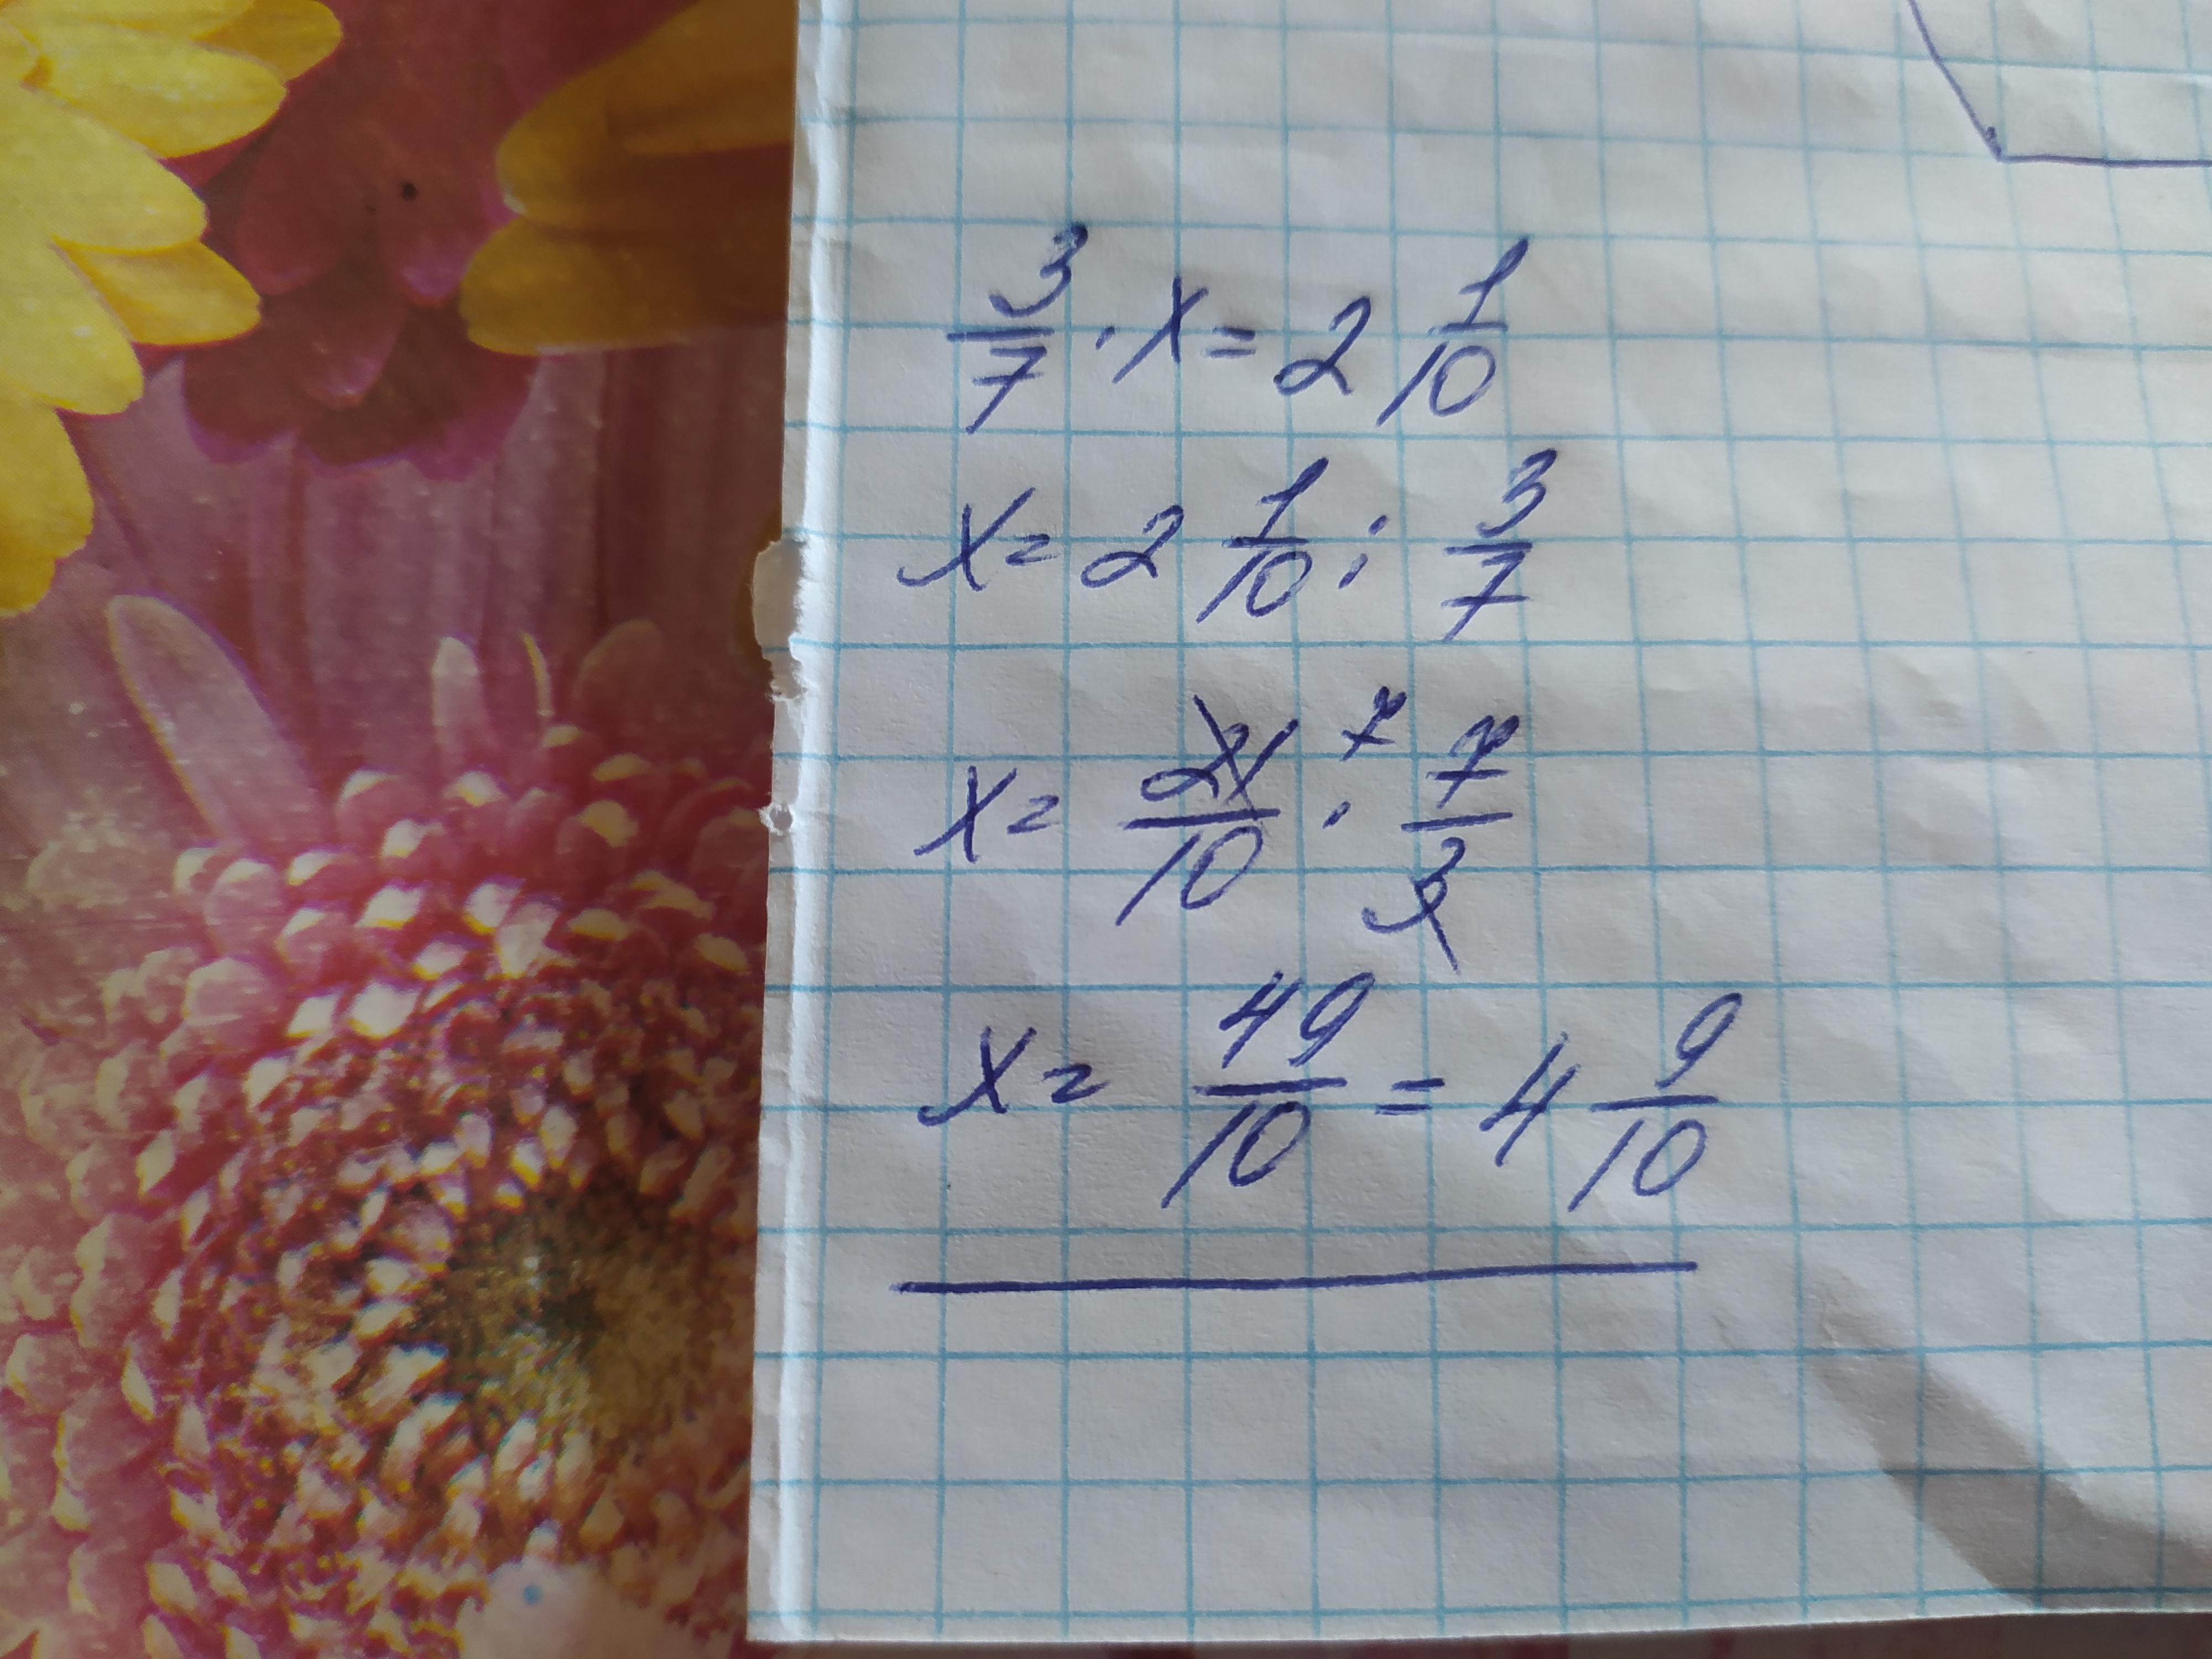 3/7 · x = 2 1/10
x = 2 1/10 : 3/7
x = 21/10 7 · 7/3
x = 49/10 = 4 9/10